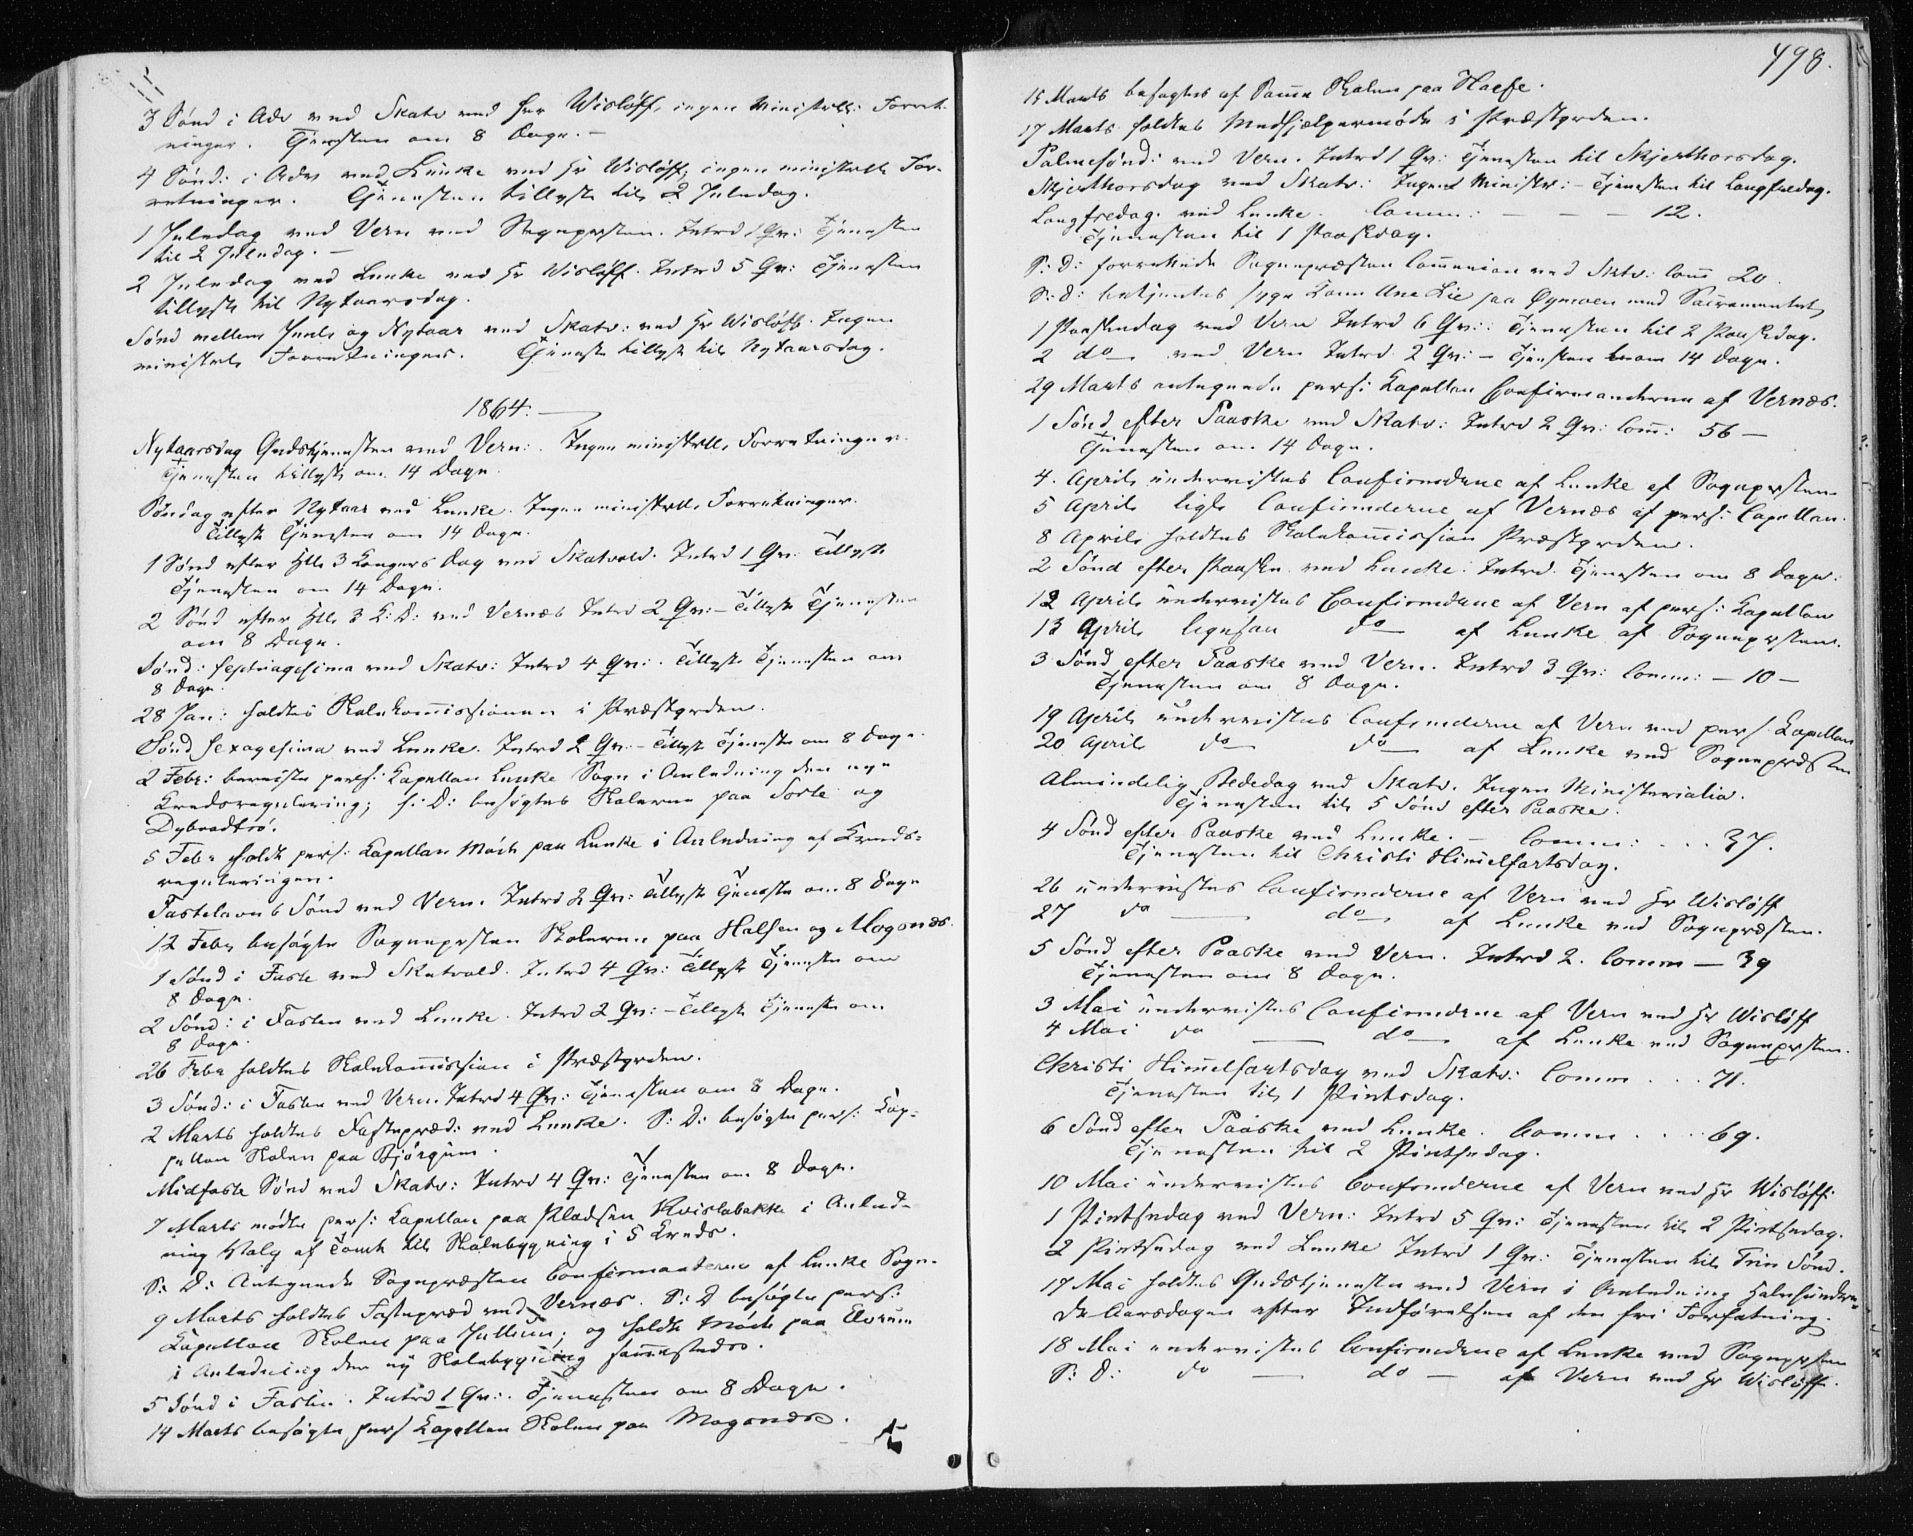 3 Sønd i Adv ved Skatv ved Hr Wisløff, ingen Ministrlle Forret-
ninger. Tjenesten om 8 Dage. –
4 Sønd: i Adv ved Lunke ved Hr Wisløff, ingen ministrlle For-
retninger. Tjenesten tillyst til 2 Juledag.
1 Juledag ved Vern ved Sognepresten. Introd 1 Qv: Tjenesten
til 2 Juledag. –
2 Juledag ved Lunke ved Hr Wisløff. Introd 5 Qv: Tjenesten
tillyst til Nytaarsdag.
Sønd mellem Juul og Nytaar ved Skatv: ved Hr Wisløff. Ingen
ministrlle Forretninger. Tjeneste tillyst til Nytaarsdag.
1864.
Nytaarsdag Gudstjenesten ved Vern: Ingen ministrlle Forretninger.
Tjenesten tillyst om 14 Dage.
Søndag efter Nytaar ved Lunke. Ingen ministrlle Forretninger.
Tillyst Tjenesten om 14 Dage.
1 Sønd efter Hll 3 Kongers Dag ved Skatvold. Introd 1 Qv: Tillyst
Tjenesten om 14 Dage.
2 Sønd efter Hll 3 K: D: ved Vernæs Introd 2 Qv: – Tillyst Tjenesten
om 8 Dage.
Sønd: Septuagesima ved Skatv: Introd 4 Qv: Tillyst Tjenesten om
8 Dage.
28 Jan: holdtes Skolekommissionen i Præstgrden.
Sønd Sexagesima ved Lunke. Introd 2 Qv: – Tillyst Tjeneste om 8 Dage.
2 Febr: bereiste pers: Kapellan Lunke Sogn i Anledning den nye
Kredsregulering; s: D: besøgtes Skolerne paa Sorte og
Dybvadtrø.
5 Febr holdt pers: Kapellan Møde paa Lunke i Anledning af Kreds-
reguleringen.
Fastelavns Sønd ved Vern. Introd 2 Qv: Tillyst Tjeneste om 8 Dage
12 Febr besøgte Sognepresten Skolerne paa Halsen og Mogsnæs.
1 Sønd i Faste ved Skatvold. Introd 4 Qv: Tillyst Tjeneste om
8 Dage.
2 Sønd: i Fasten ved Lunke. Introd 2 Qv: – Tillyst Tjeneste om
8 Dage.
26 Febr holdtes Skolekommission i Præstgrden.
3 Sønd: i Fasten ved Vern. Introd 4 Qv: Tjenesten om 8 Dage.
2 Marts holdtes Fastepræd: ved Lunke. S: D: besøgte pers: Cap-
pellan Skolen paa Bjørgum.
Midfaste Sønd ved Skatv: Introd 4 Qv: Tjenesten om 8 Dage.
7 Marts mødte pers: Kapellan paa Pladsen Kvislabakke i Anled-
ning Valg af Tomt til Skolebygning i 5 Kreds.
S: D: Antegnede Sognepræsten Confirmanterne af Lunke Sogn.
9 Marts holdtes Fastepræd ved Vernæs. S: D besøgte pers:
Kapellan Skolen paa Jullum; og holdt Møde paa Elvrum
i Anledning den ny Skolebygning sammesteds.
5 Sønd i Fasten. Introd 1 Qv: Tjenesten om 8 Dage.
14 Marts besøgte pers Kapellan Skolen paa Mogsnæs.
498.
15 Marts besøgtes af Samme Skolen paa
17 Marts holdtes Medhjælpermøde i Præstgrden.
Palmesønd: ved Vern. Introd 1 Qv: Tjenesten til Skjerthorsdag.
Skjerthorsdag ved Skatv: Ingen Ministr: – Tjenesten til Langfredag.
Langfredag ved Lunke. Comm: – – – 12.
Tjenesten til 1 Paaskedag.
S: D: forrettede Sognepræsten Communion ved Skatv: Comm 20
S: D: betjentes syge Kone Ane Lie paa Øymoen med Sacramentet
1 Paaskedag ved Vern Introd 6 Qv: Tjenesten til 2 Paaskedag.
2 do ved Vern Introd 2 Qv: – Tjenesten om 14 Dage.
29 Marts antegnede pers: Kapellan Confirmanderne af Vernæs.
1 Sønd efter Paaske ved Skatv: Introd 2 Qv: Comm: 56 –
Tjenesten om 14 Dage.
4. April underviistes Confirmderne af Lunke af Sognepresten
5 April ligl Confirmderne af Vernæs af pers: Capellan.
8 April holdtes Skolekommission Præstgrden.
2 Sønd efter Paaske ved Lunke. Introd. Tjenesten om 8 Dage.
12 April underviistes Confirmderne af Vern af pers: Kapellan
13 April ligesaa do af Lunke af Sognepresten.
3 Sønd efter Paaske ved Vern. Introd 3 Qv: Comm: – 10 –
Tjenesten om 8 Dage.
19 April underviistes Confirmderne af Vern ved pers Kapellan
20 April do do af Lunke ved Sognepræsten
Almindelig Bededag ved Skatv. Ingen Ministerialia.
Tjenesten til 5 Sønd efter Paaske.
4 Sønd efter Paaske ved Lunke. – Comm: . . . 37.
Tjenesten til Christi Himmelfartsdag.
26 underviistes Confirmderne af Vern ved Hr Wisløff
27 do do af Lunke ved Sognepræsten.
5 Sønd efter Paaske ved Vern. Introd 2. Comm – 39
Tjenesten om 8 Dage.
3 Mai underviistes Confirmderne af Vern ved Hr Wisløff
4 Mai do do af Lunke ved Sognepresten.
Christi Himmelfartsdag ved Skatv: Comm . . . 71.
Tjenesten til 1 Pintsdag.
6 Sønd efter Paaske ved Lunke. Comm . . . 69.
Tjenesten til 2 Pintsedag.
10 Mai underviistes Confirmderne af Vern ved Hr Wisløff.
1 Pintsedag ved Vern: Introd 5 Qv: Tjenesten til 2 Pintsedag.
2 Pintsedag ved Lunke Introd 1 Qv: Tjenesten til Trin Sønd.
17 Mai holdtes Gudstjeneste ved Vern i Anledning Halvhundre-
de Aarsdagen efter Indførelsen af den fri Forfatning.
18 Mai underviistes Confirmderne af Lunke ved Sognepresten
S: D: do do af Vern ved Hr Wisløff.